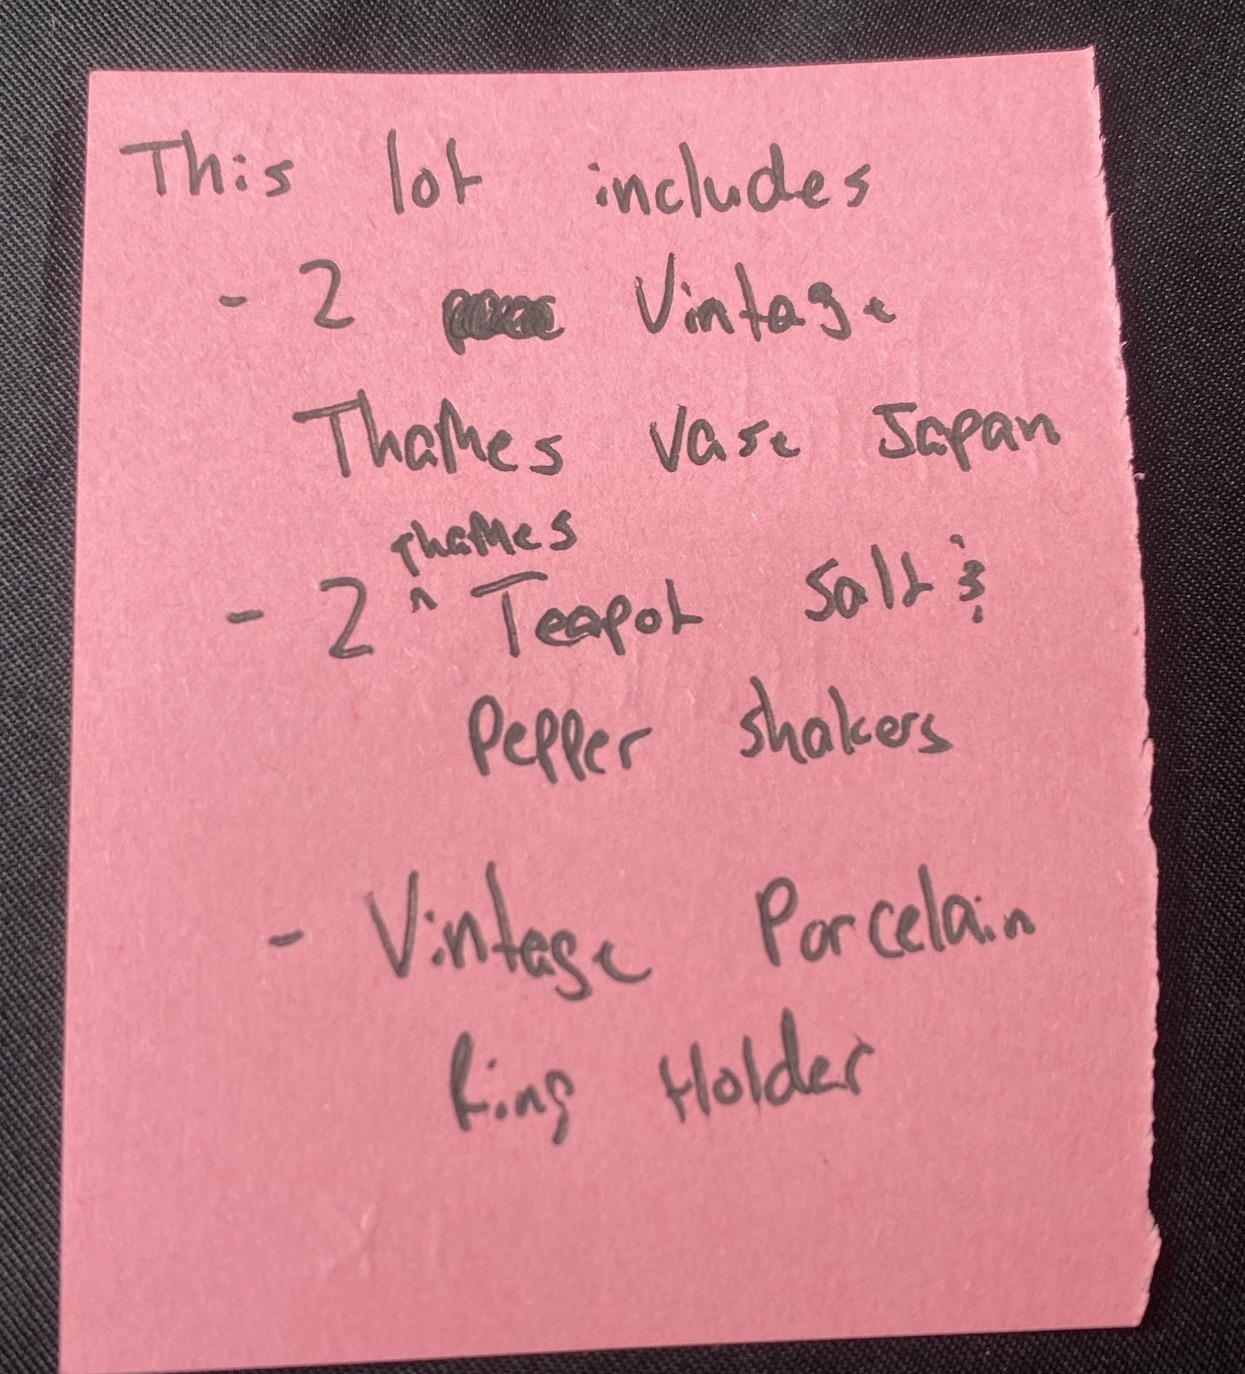 This lot includes
- 2 Vintage
Thames Vase Japan
Thames
- 2 ^ Teapot Salt &
Pepper shakers
- Vintage Porcelain
Ring Holder